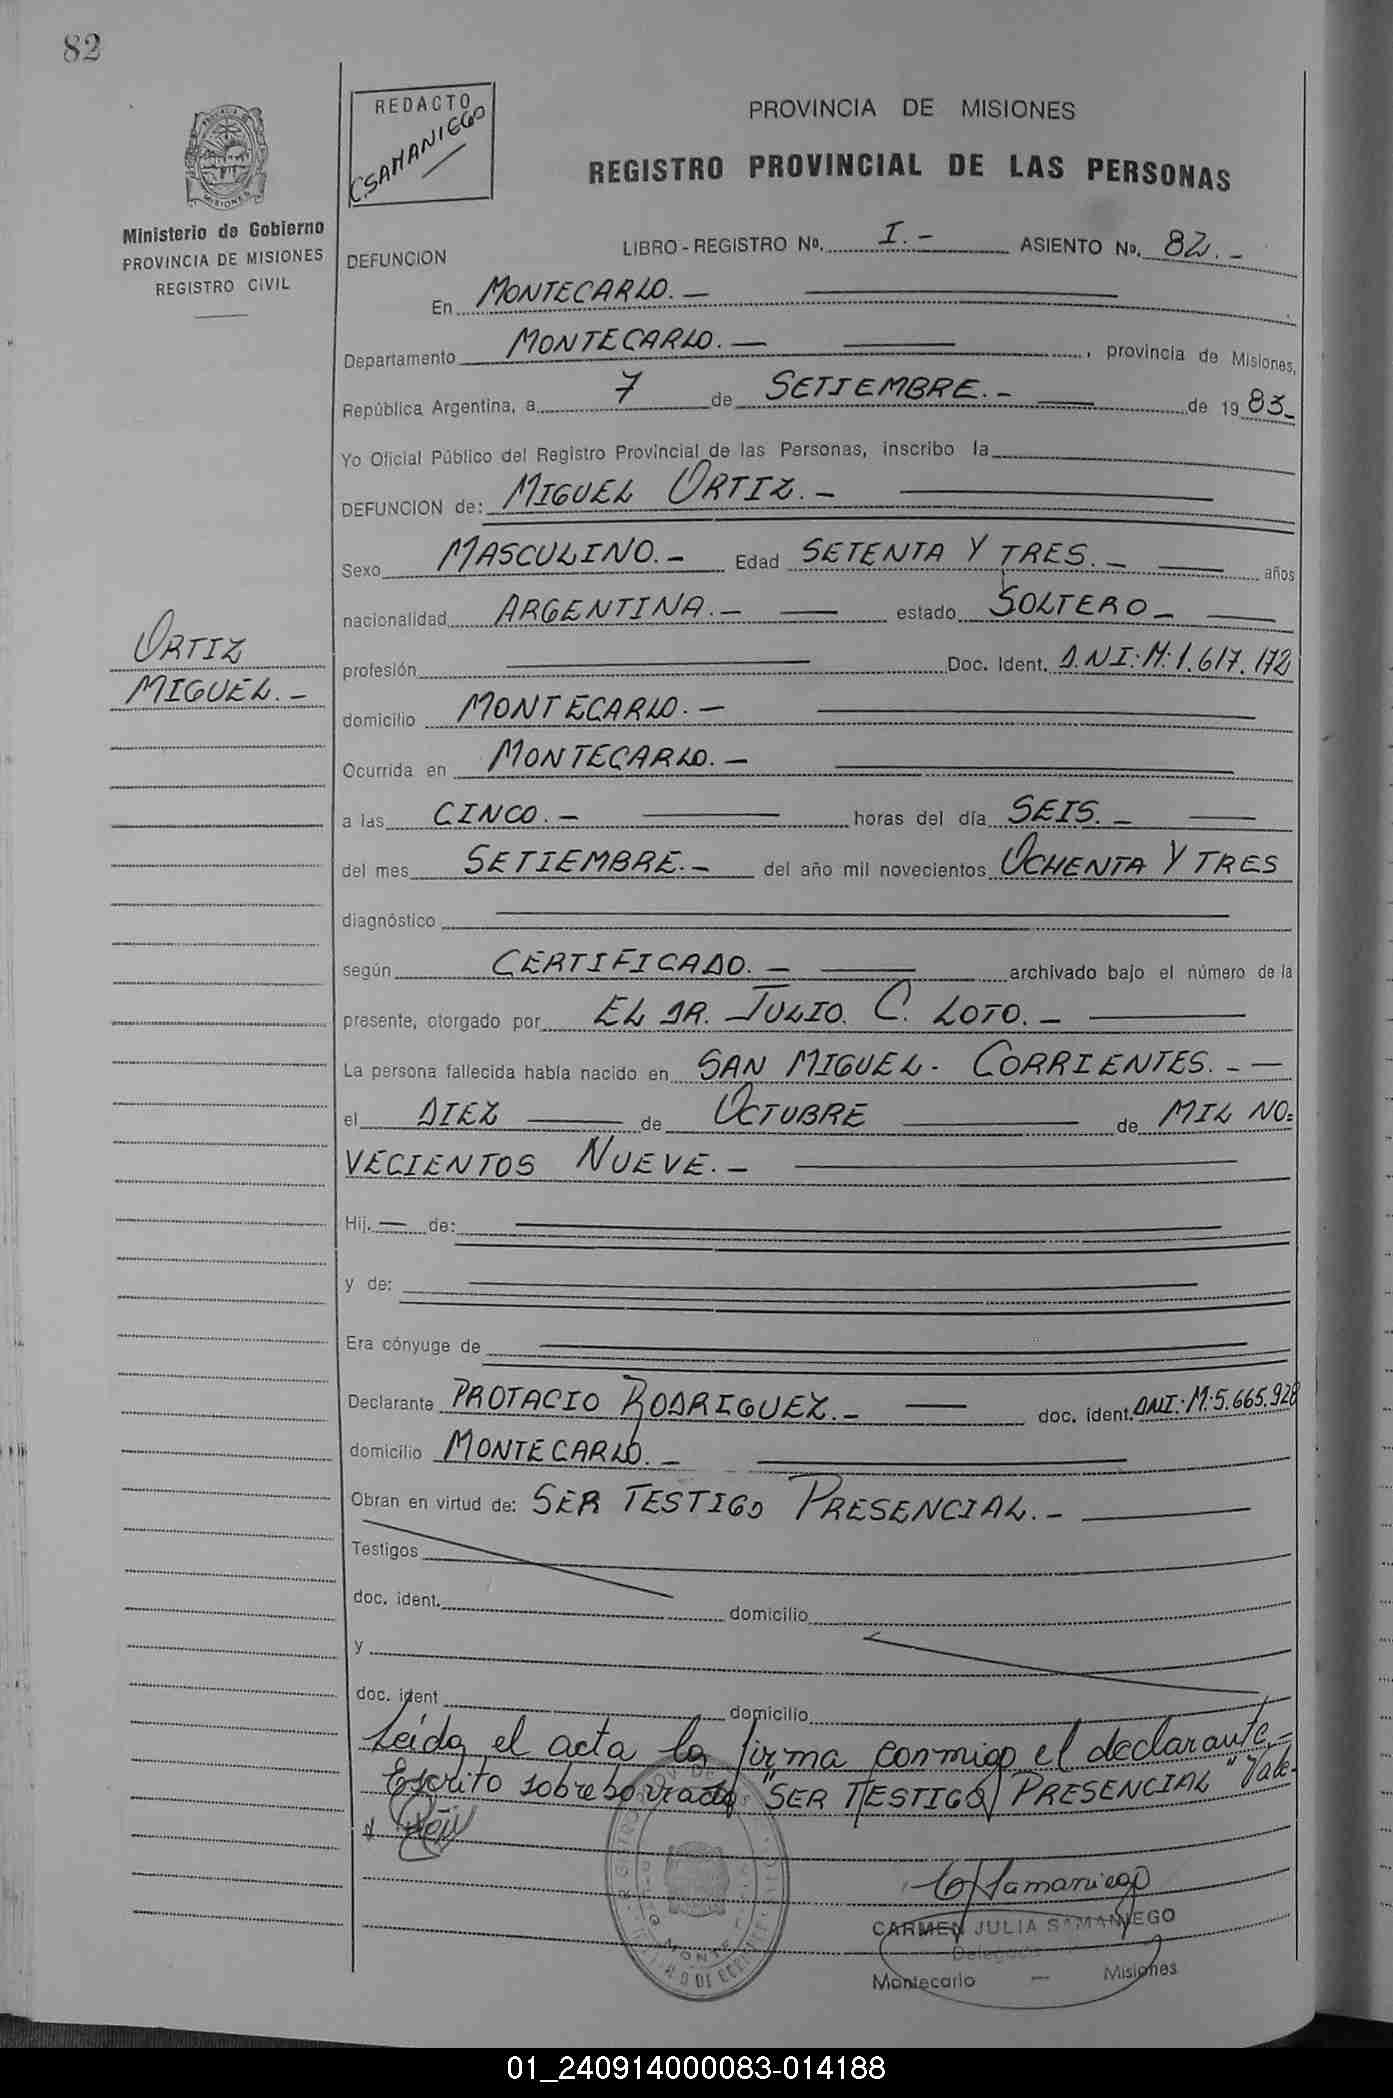 82
REDACTO
CSAMANIEGO
PROVINCIA DE MISIONES
REGISTRO PROVINCIAL DE LAS PERSONAS
Ministerio de Gobierno
PROVINCIA DE MISIONES
REGISTRO CIVIL
DEFUNCION LIBRO - REGISTRO Nº. I.- ASIENTO Nº. 82.-
En MONTECARLO.-
Departamento MONTECARLO.- , provincia de Misiones,
República Argentina, a 7 de SETIEMBRE.- de 19 83-
Yo Oficial Público del Registro Provincial de las Personas, inscribo la
DEFUNCION de: MIGUEL ORTIZ.-
Sexo MASCULINO.- Edad SETENTA Y TRES.- años
nacionalidad ARGENTINA.- estado SOLTERO-
ORTIZ
MIGUEL.-
profesión Doc. Ident. D.NI:M:1.617.172
domicilio MONTECARLO.-
Ocurrida en MONTECARLO.-
a las CINCO.- horas del día SEIS.-
del mes SETIEMBRE.- del año mil novecientos OCHENTA Y TRES
diagnóstico
según CERTIFICADO.- archivado bajo el número de la
presente, otorgado por EL DR. JULIO. C. LOTO.-
La persona fallecida había nacido en SAN MIGUEL- CORRIENTES.-
el DIEZ de OCTUBRE de MIL NO=
VECIENTOS NUEVE.-
Hij. de:
y de:
Era cónyuge de
Declarante PROTACIO RODRIGUEZ.- doc. ident. DNI:M:5.665.928
domicilio MONTECARLO.-
Obran en virtud de: SER TESTIGO PRESENCIAL.-
Testigos
doc. ident. domicilio
y
doc. ident domicilio
Leída el acta la firma conmigo el declarante.-
Escrito sobreborrado "SER TESTIGO PRESENCIAL" Vale-
CSamaniego
CARMEN JULIA SAMANIEGO
Delegada
Montecarlo — Misiones
01_240914000083-014188